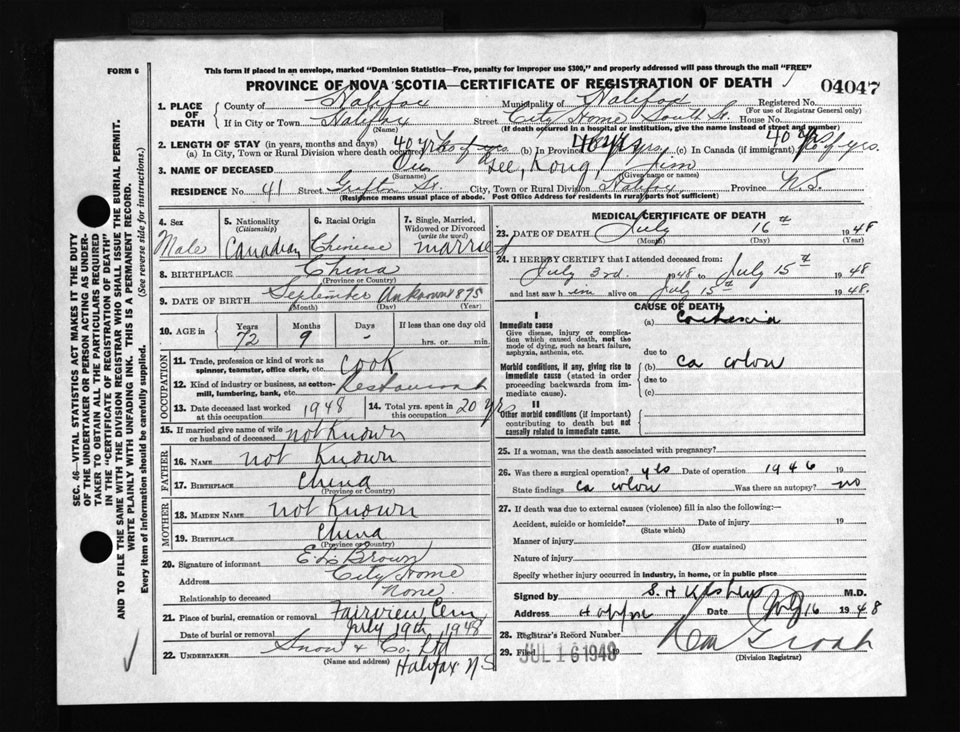 FORM 6
This form if placed in an envelope, marked "Dominion Statistics—Free, penalty for improper use $300," and properly addressed will pass through the mail "FREE"
PROVINCE OF NOVA SCOTIA—CERTIFICATE OF REGISTRATION OF DEATH
04047
1. PLACE OF DEATH
County of Halifax Municipality of Halifax Registered No.
(For use of Registrar General only)
If in City or Town Halifax Street City Home South St. House No.
(Name) (If death occurred in a hospital or institution, give the name instead of street and number)
2. LENGTH OF STAY (in years, months and days)
(a) In City, Town or Rural Division where death occurred 40 yrs (b) In Province 40 yrs. (c) In Canada (if immigrant) 40 yrs
3. NAME OF DECEASED
(Surname) (Given name or names)
RESIDENCE No. 41 Street Grafton St. City, Town or Rural Division Halifax Province N.S.
(Residence means usual place of abode. Post Office Address for residents in rural parts not sufficient)
4. Sex Male
5. Nationality (Citizenship) Canadian
6. Racial Origin Chinese
7. Single, Married, Widowed or Divorced (write the word) married
8. BIRTHPLACE China
(Province or Country)
9. DATE OF BIRTH September Unknown 1875
(Month) (Day) (Year)
10. AGE in Years Months Days If less than one day old
72 9 - hrs. or min.
OCCUPATION
11. Trade, profession or kind of work as spinner, teamster, office clerk, etc. Cook
12. Kind of industry or business, as cotton-mill, lumbering, bank, etc. Restaurant
13. Date deceased last worked at this occupation 1948
14. Total yrs. spent in this occupation 20 yrs
15. If married give name of wife or husband of deceased not Known
FATHER
16. NAME not Known
17. BIRTHPLACE China
(Province or Country)
MOTHER
18. MAIDEN NAME not Known
19. BIRTHPLACE China
(Province or Country)
20. Signature of informant Brown
Address City Home
Relationship to deceased None
21. Place of burial, cremation or removal Fairview Cem
Date of burial or removal July 19th, 1948
22. UNDERTAKER Snow & Co. Ltd
(Name and address) Halifax N S
MEDICAL CERTIFICATE OF DEATH
23. DATE OF DEATH July 16th 1948
(Month) (Day) (Year)
24. I HEREBY CERTIFY that I attended deceased from:
July 3rd. 1948 to July 15th 1948
and last saw him alive on July 15th 1948.
CAUSE OF DEATH
I
Immediate cause (a)
Give disease, injury or complication which caused death, not the mode of dying, such as heart failure, asphyxia, asthenia, etc.
due to
Morbid conditions, if any, giving rise to immediate cause (stated in order proceeding backwards from immediate cause).
(b) ca colon
due to
(c)
II
Other morbid conditions (if important) contributing to death but not causally related to immediate cause.
25. If a woman, was the death associated with pregnancy?
26. Was there a surgical operation? yes Date of operation 1946 19
State findings ca colon Was there an autopsy? no
27. If death was due to external causes (violence) fill in also the following:—
Accident, suicide or homicide? Date of injury 19
(State which)
Manner of injury
(How sustained)
Nature of injury
Specify whether injury occurred in industry, in home, or in public place
Signed by M.D.
Address Date July 16 1948
28. Registrar's Record Number
29. Filed JUL 16 1948
(Division Registrar)
SEC. 46—VITAL STATISTICS ACT MAKES IT THE DUTY OF THE UNDERTAKER OR PERSON ACTING AS UNDERTAKER TO OBTAIN ALL THE PARTICULARS REQUIRED IN THE "CERTIFICATE OF REGISTRATION OF DEATH" AND TO FILE THE SAME WITH THE DIVISION REGISTRAR WHO SHALL ISSUE THE BURIAL PERMIT.
WRITE PLAINLY WITH UNFADING INK. THIS IS A PERMANENT RECORD.
Every item of information should be carefully supplied. (See reverse side for instructions.)